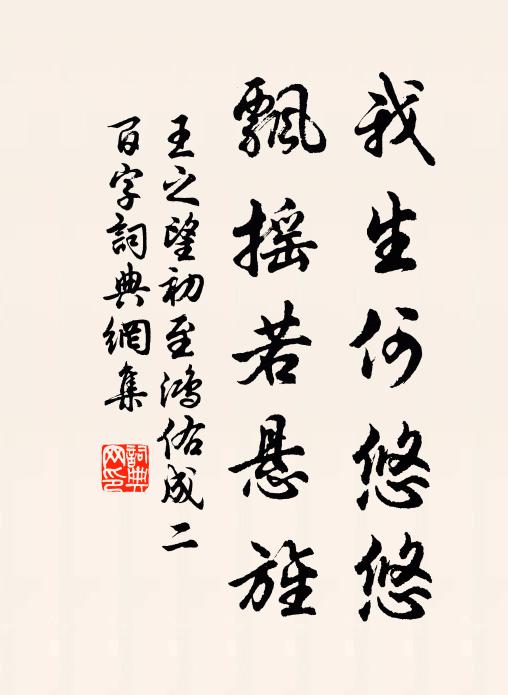 我生何悠悠
飄搖若悬旌
王之望初至鴻佑成二
百字詞典網集
詞典
网印